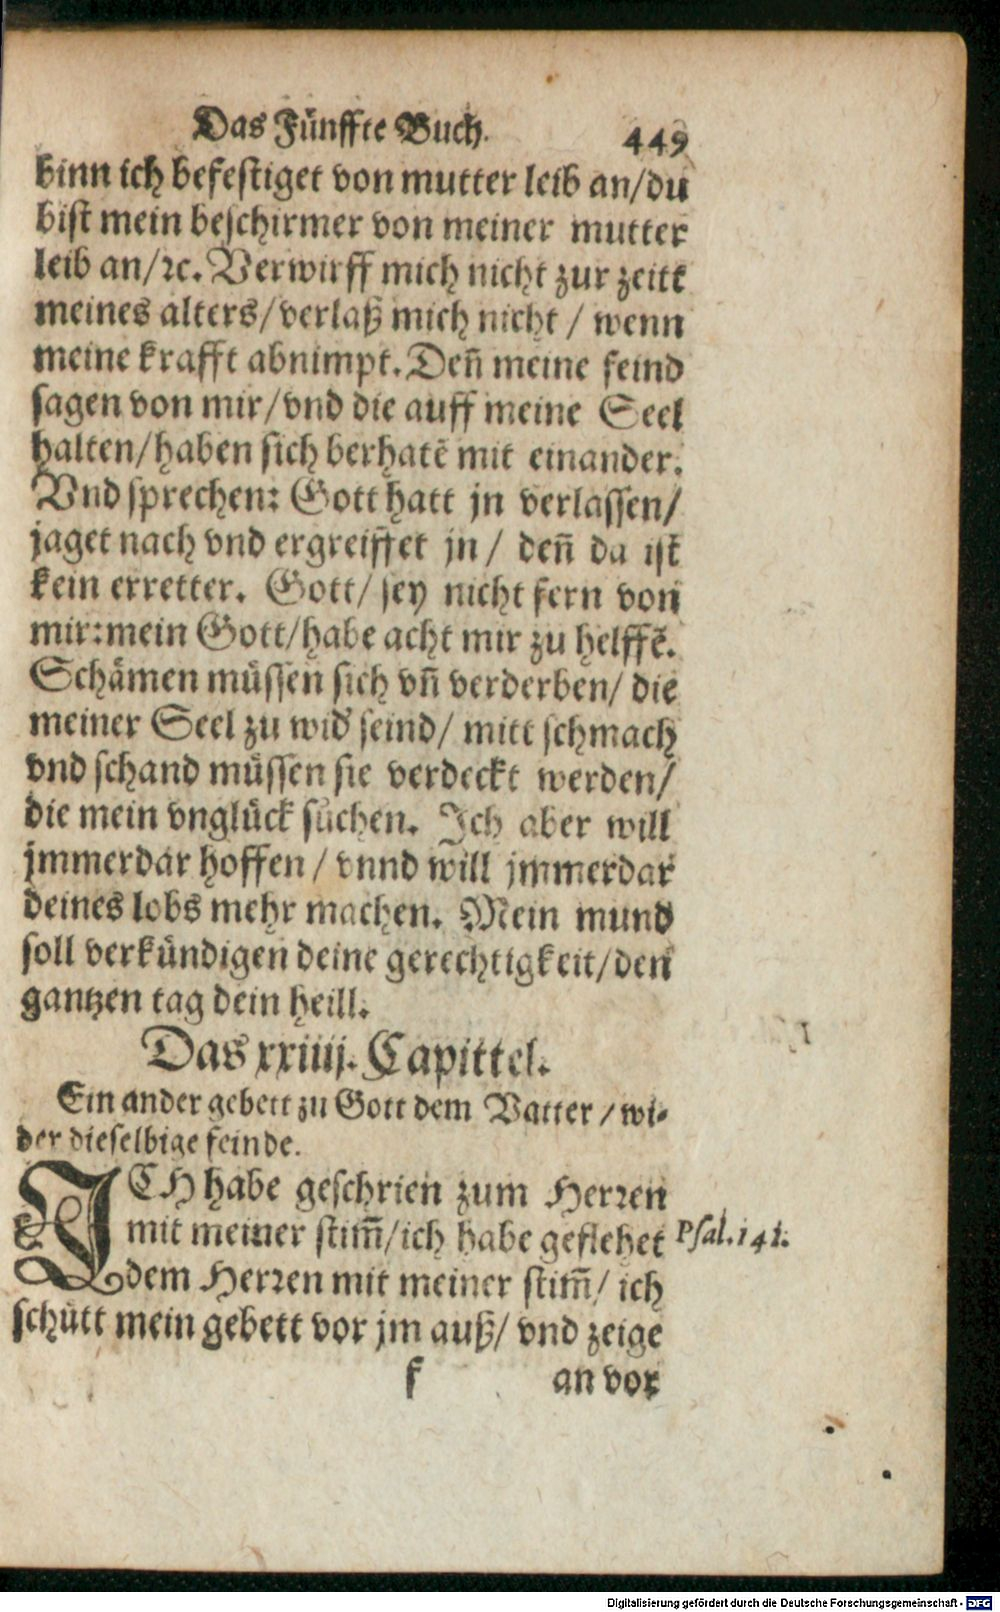 Das Fünffte Buch. 449
binn ich befestiget von mutter leib an/du
bist mein beschirmer von meiner mutter
leib an/ꝛc. Verwirff mich nicht zur zeitt
meines alters/verlaß mich nicht / wenn
meine krafft abnimpt. Deñ meine feind
sagen von mir/vnd die auff meine Seel
halten/haben sich berhatẽ mit einander.
Vnd sprechen: Gott hatt jn verlassen/
jaget nach vnd ergreiffet jn/ deñ da ist
kein erretter. Gott/ sey nicht fern von
mir:mein Gott/habe acht mir zu helffẽ.
Schämen müssen sich vñ verderben/ die
meiner Seel zu wid' seind/ mitt schmach
vnd schand müssen sie verdeckt werden/
die mein vnglück suchen. Ich aber will
jmmerdar hoffen / vnnd will jmmerdar
deines lobs mehr machen. Mein mund
soll verkündigen deine gerechtigkeit/den
gantzen tag dein heill.
Das xxiiij. Capittel.
Ein ander gebett zu Gott dem Vatter / wi-
der dieselbige feinde.
ICH habe geschrien zum Herꝛen
mit meiner stim̃/ich habe geflehet Psal. 141.
dem Herꝛen mit meiner stim̃/ ich
schütt mein gebett vor jm auß/ vnd zeige
f an vor
Digitalisierung gefördert durch die Deutsche Forschungsgemeinschaft - DFG